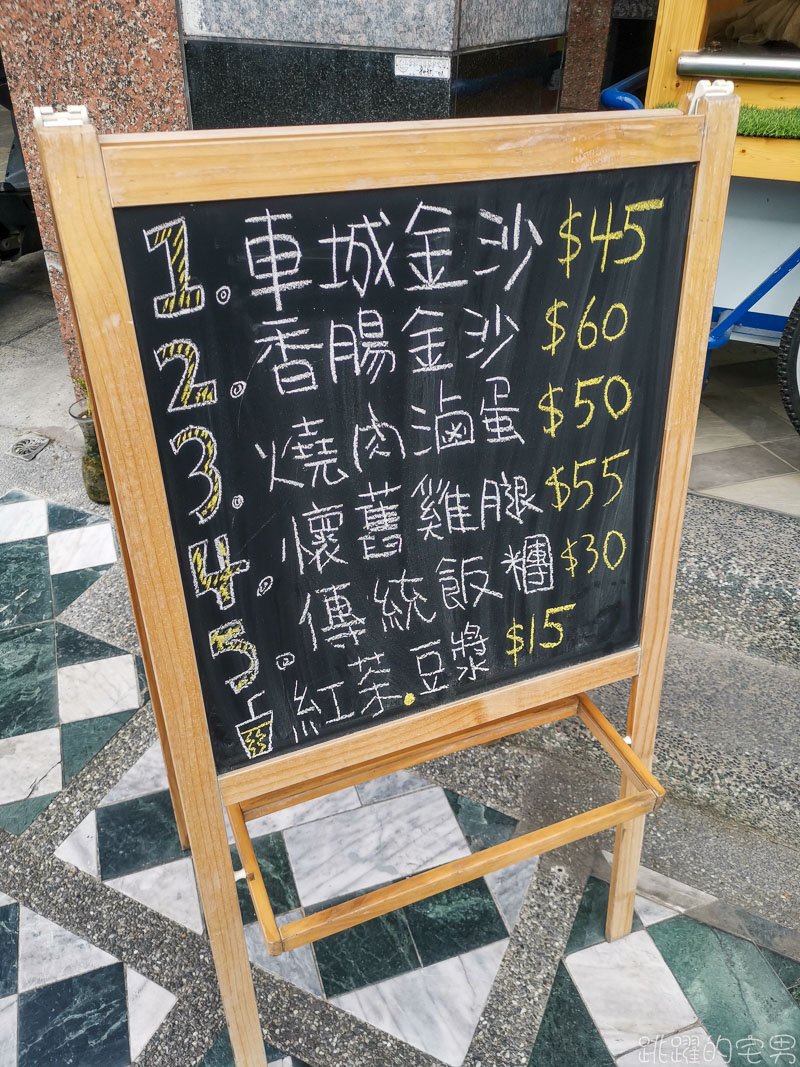 1. 車城金沙 $45
2. 香腸金沙 $60
3. 燒肉滷蛋 $50
4. 懷舊雞腿 $55
5. 傳統飯糰 $30
紅茶.豆漿 $15
跳躍的宅男